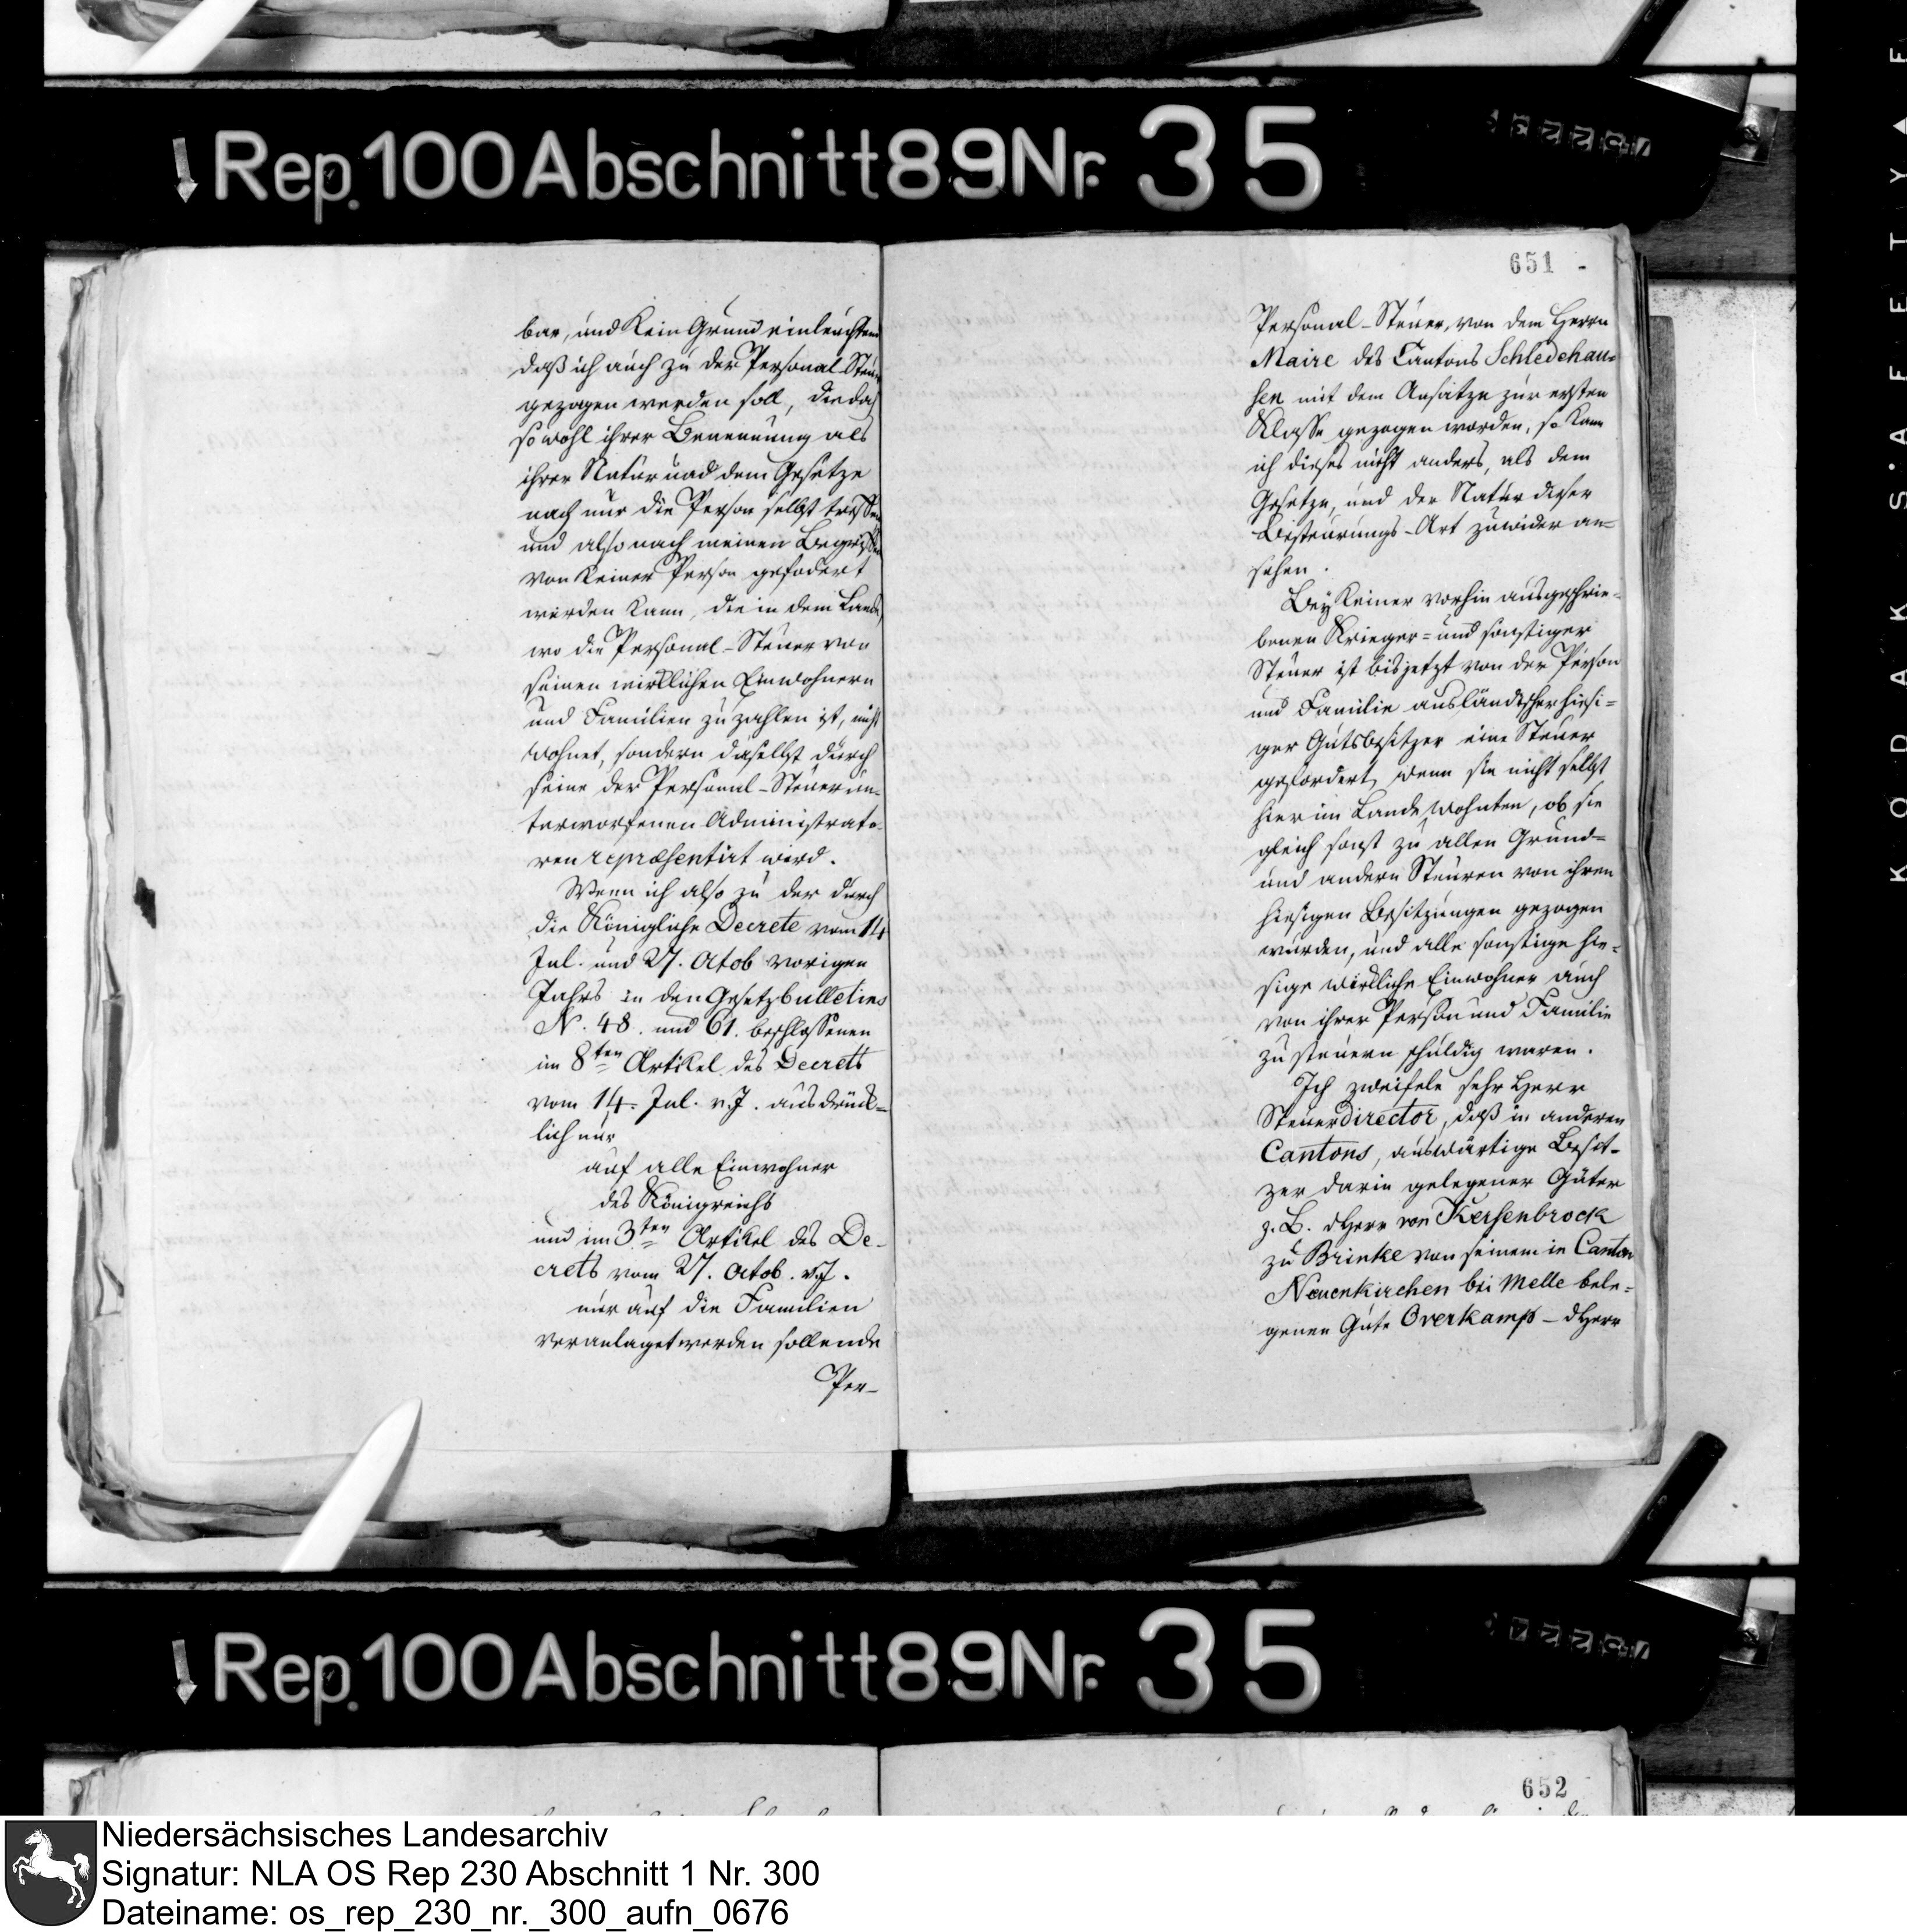 ↓Rep.100Abschnitt89Nr. 35
bar, und kein Grund einleuchtend
daß ich auch zu der Personal-Steuer
gezogen werden soll, die doch
so wohl ihrer Benennung als
ihrer Natur und dem Gesetze
nach nur die Person selbst treffen
und also nach meinen Begriffen
von keiner Person gefodert
werden kann, die in dem Lande,
wo die Personal-Steuer von
seinen wirklichen Einwohnern
und Familien zu zahlen ist, nicht
wohnet, sondern daselbst durch
seine der Personal-Steuer un-
terworfenen Administrato-
ren repræsentirt wird.
Wenn ich also zu der durch
die Königliche Decrete vom 14
Jul. und 27. Octob vorigen
Jahrs in den Gesetzbulletins
N. 48. und 61. beschlossenen
im 8ten Artikel des Decrets
vom 14. Jul. v. J. ausdrück=
lich nur
auf alle Einwohner
des Königreichs
und im 3ten Artikel des De-
crets vom 27. Octob. v. J.
nur auf die Familien
veranlaget werden sollende
Per-
651 -
Personal-Steuer, von dem Herrn
Maire des Cantons Schledehau=
sen mit dem Ansatze zur ersten
Klasse gezogen worden, so kann
ich dieses nicht anders, als dem
Gesetze, und der Natur dieser
Besteurungs-Art zuwider an=
sehen.
Bey keiner vorhin ausgeschrie=
benen Krieger= und sonstiger
Steuer ist bis jetzt von der Person
und Familie ausländischer hiesi=
ger Gutsbesitzer eine Steuer
gefordert, wenn sie nicht selbst
hier im Lande wohnten, ob sie
gleich sonst zu allen Grund=
und andern Steuren von ihren
hiesigen Besitzungen gezogen
wurden, und alle sonstige hie=
sige wirkliche Einwohner auch
von ihrer Person und Familie
zu steuern schuldig waren.
Ich zweifele sehr Herr
Steuerdirector, daß in anderen
Cantons, auswärtige Besit-
zer darin gelegener Güter
z. B. dHerr von Kersenbrock
zu Brinke von seinem in Canton
Neuenkirchen bei Melle bele=
genen Gute Overkamp – dHerr
↓Rep.100Abschnitt89Nr. 35
652
KODAK SAFETY
Niedersächsisches Landesarchiv
Signatur: NLA OS Rep 230 Abschnitt 1 Nr. 300
Dateiname: os_rep_230_nr._300_aufn_0676